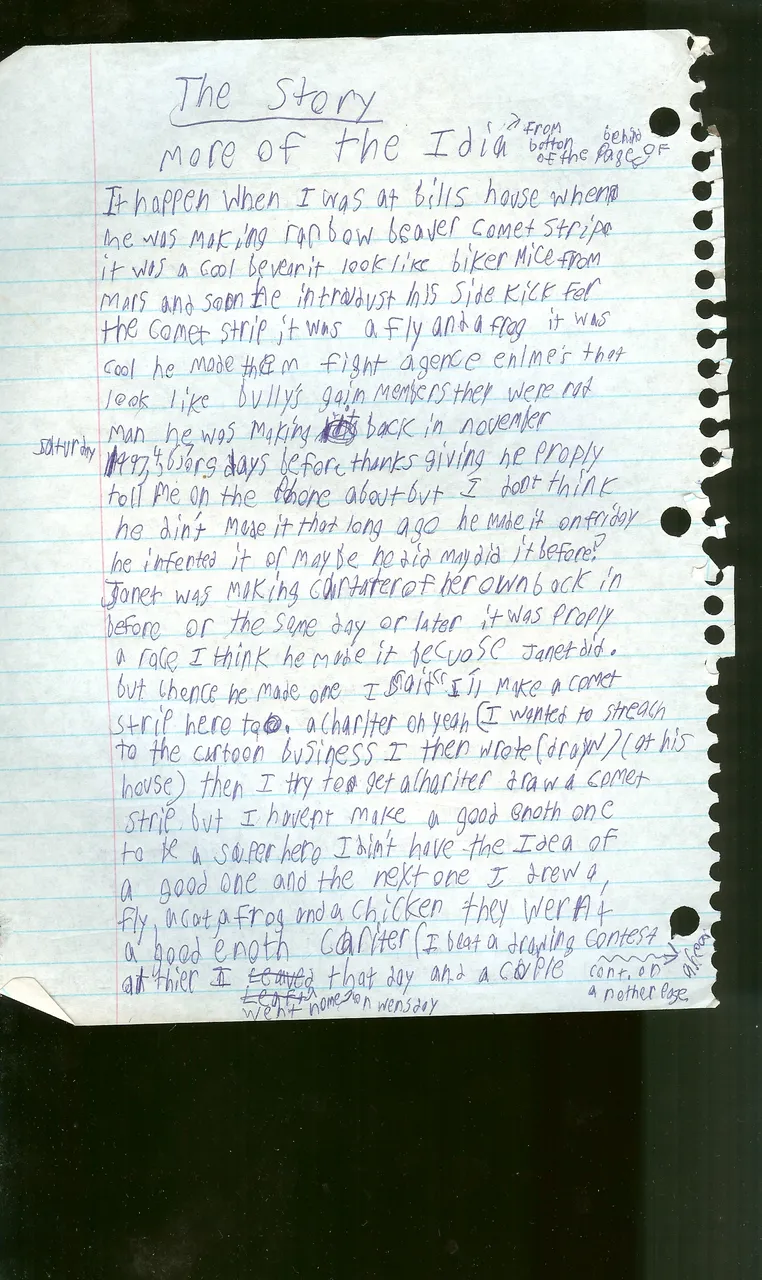 The Story
more of the Idia from bottom of the behind Page of
It happen when I was at bills house when
he was making ranbow beaver comet stripe
it was a cool bever it look like biker Mice from
Mars and soon he introdust his side kick for
the comet strip, it was a fly and a frog it was
cool he made them fight agence enime's that
look like bully's gain members they were not
man he was making it back in november
Saturday 1993, days before thanks giving he proply
toll me on the Phone about but I dont think
he din't made it that long ago he made it on friday
he infented it or maybe he did may did it before?
Janet was making of her own back in
before or the same day or later it was proply
a race I think he made it becuose Janet did.
but chence he made one I said "I'll make a comet
strip here too. a chariter oh yeah (I wanted to streach
to the cartoon business I then wrote (drayw) (at his
house) then I try to get a chariter draw a comet
strip, but I havent make a good enoth one
to be a super hero I din't have the Idea of
a good one and the next one I drew a,
fly, a cat a frog and a chicken they wernt
a good enoth cariter (I beat a drawing contest
at thier I leaved that day and a couple
went home on wensday
cont. on
a nother page